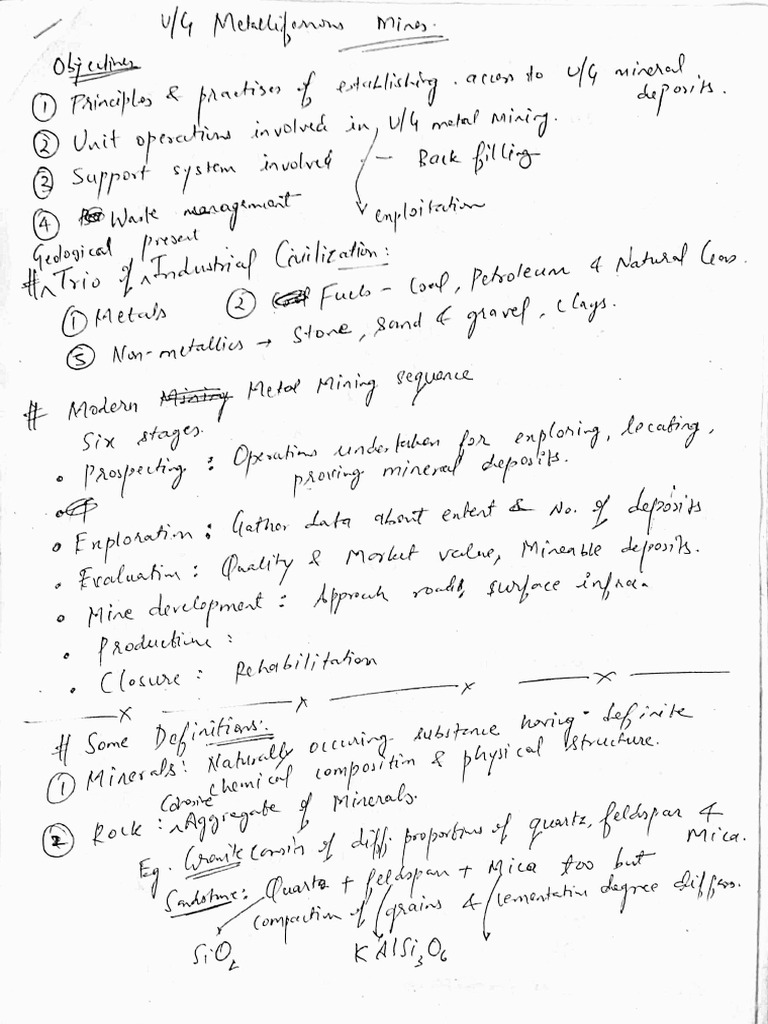 U/G Metalliferous Mines.
Objectives
① Principles & practises of establishing access to U/G mineral deposits.
② Unit operations involved in U/G metal mining.
③ Support system involved – Back filling
④ Waste management exploitation
# Geological Trio of present Industrial Civilization:
① Metals ② Fuels – Coal, Petroleum & Natural Gas.
③ Non-metallics → Stone, sand & gravel, clays.
# Modern Metal Mining sequence
Six stages.
• Prospecting : Operations undertaken for exploring, locating,
proving mineral deposits.
• Exploration : Gather data about extent & No. of deposits
• Evaluation : Quality & Market value, Mineable deposits.
• Mine development : Approach roads, surface infra.
• Production :
• Closure : Rehabilitation
# Some Definitions:
① Minerals: Naturally occuring substance having definite
chemical composition & physical structure.
② Rock : Cohesive Aggregate of Minerals.
Eg. Granite consis of diff. proportions of quartz, feldspar & Mica.
Sandstone: Quartz + feldspar + Mica too but
compaction of grains & cementation degree differs.
SiO2 KAlSi3O6